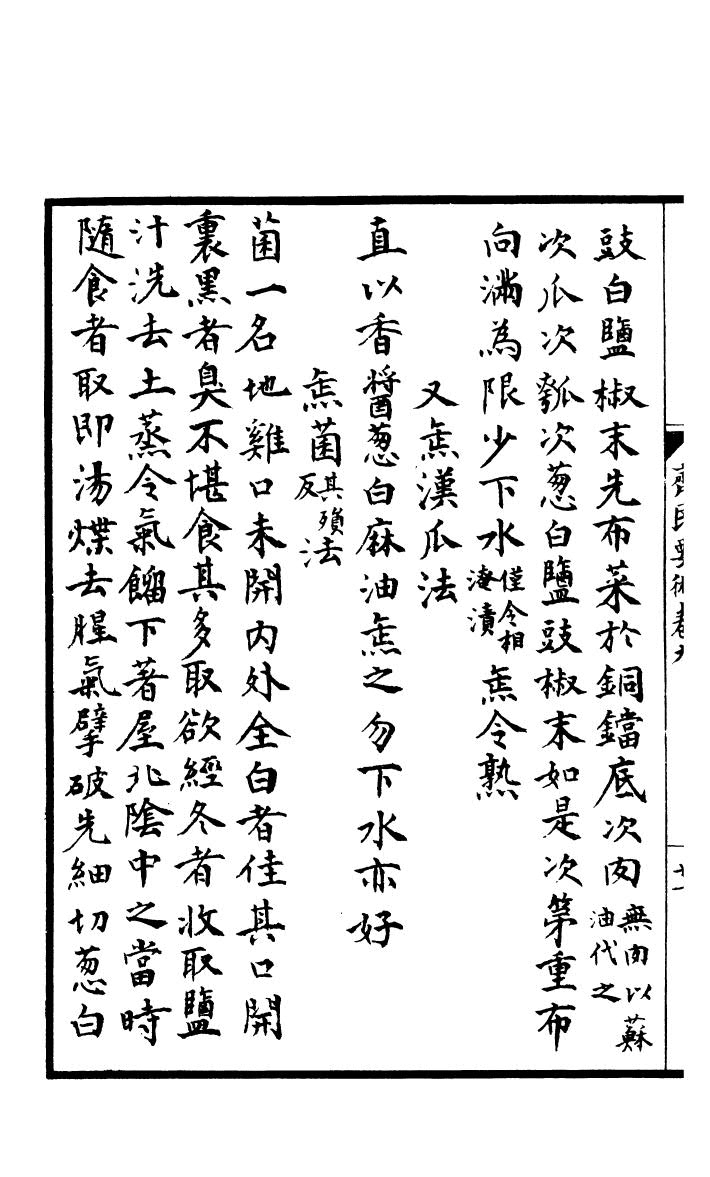 齊民要術卷九
十一
豉白鹽椒末先布菜於銅鐺底次肉無肉以蘇油代之
次瓜次瓠次葱白鹽豉椒末如是次第重布
向滿為限少下水僅令相淹漬缹令熟
又缹漢瓜法
直以香醬葱白麻油缹之勿下水亦好
缹菌其殞反法
菌一名地雞口未開內外全白者佳其口開
裏黑者臭不堪食其多取欲經冬者收取鹽
汁洗去土蒸令氣餾下著屋北陰中之當時
隨食者取即湯煠去腥氣擘破先細切葱白